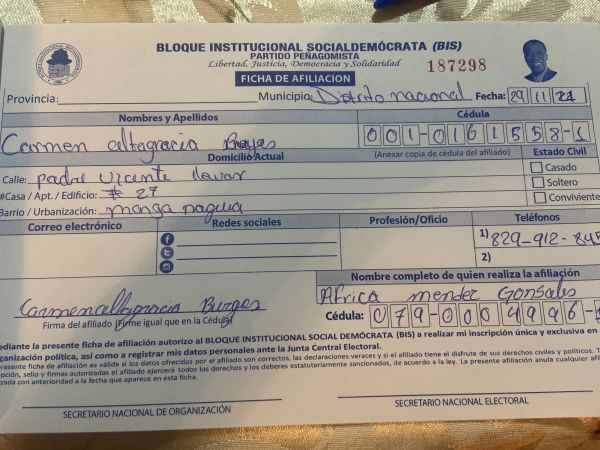 BLOQUE INSTITUCIONAL SOCIALDEMÓCRATA (BIS)
PARTIDO PEÑAGOMISTA
Libertad, Justicia, Democracia y Solidaridad
187298
FICHA DE AFILIACION
Provincia: Municipio Distrito nacional Fecha: 29 11 21
Nombres y Apellidos Cédula
Carmen altagracia 001-0161558-
Domicilio Actual (Anexar copia de cédula del afiliado) Estado Civil
Calle: padre vicente Casado
#Casa / Apt. / Edificio: # 27 Soltero
Barrio / Urbanización: manga nagua Conviviente
Correo electrónico Redes sociales Profesión/Oficio Teléfonos
1) 829-912-845
2)
Nombre completo de quien realiza la afiliación
Carmen altagracia Burgos Africa mendez Gonsales
Firma del afiliado (Firme igual que en la Cédula) Cédula: 079-0004996-
ediante la presente ficha de afiliación autorizo al BLOQUE INSTITUCIONAL SOCIAL DEMÓCRATA (BIS) a realizar mi inscripción única y exclusiva en
ganización política, así como a registrar mis datos personales ante la Junta Central Electoral.
presente ficha de afiliación es válida si los datos ofrecidos por el afiliado son correctos, las declaraciones veraces y si el afiliado tiene el disfrute de sus derechos civiles y políticos.
pción, sello y firmas autorizadas el afiliado ejercerá todos los derechos y los deberes estatutariamente sancionados, de acuerdo a la ley. La presente afiliación anula cualquier afil
zada con anterioridad a la fecha que aparece en esta ficha.
SECRETARIO NACIONAL DE ORGANIZACIÓN SECRETARIO NACIONAL ELECTORAL